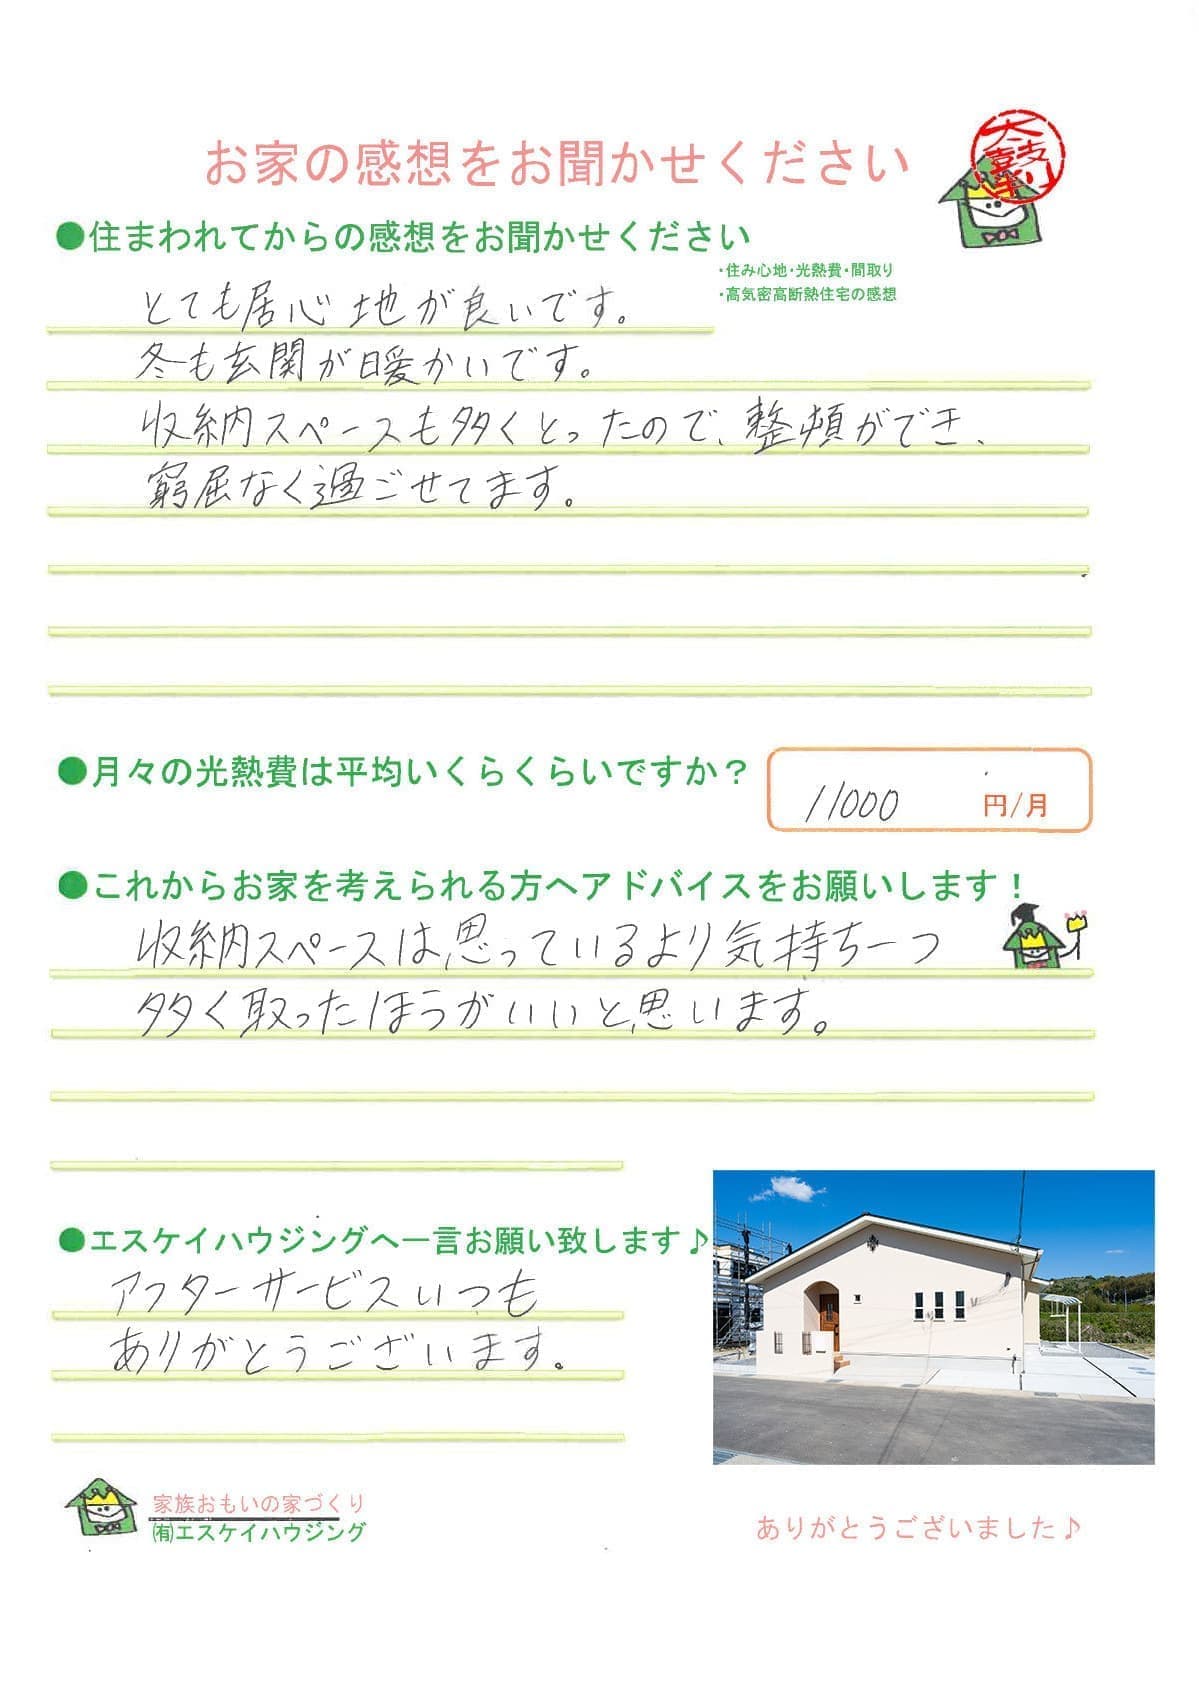 お家の感想をお聞かせください
太鼓判
●住まわれてからの感想をお聞かせください
・住み心地・光熱費・間取り
・高気密高断熱住宅の感想
とても居心地が良いです。
冬も玄関が暖かいです。
収納スペースも多くとったので、整頓ができ、
窮屈なく過ごせてます。
●月々の光熱費は平均いくらくらいですか？
11000 円/月
●これからお家を考えられる方へアドバイスをお願いします！
収納スペースは、思っているより気持ち一つ
多く取ったほうがいいと思います。
●エスケイハウジングへ一言お願い致します♪
アフターサービスいつも
ありがとうございます。
家族おもいの家づくり
㈲エスケイハウジング
ありがとうございました♪